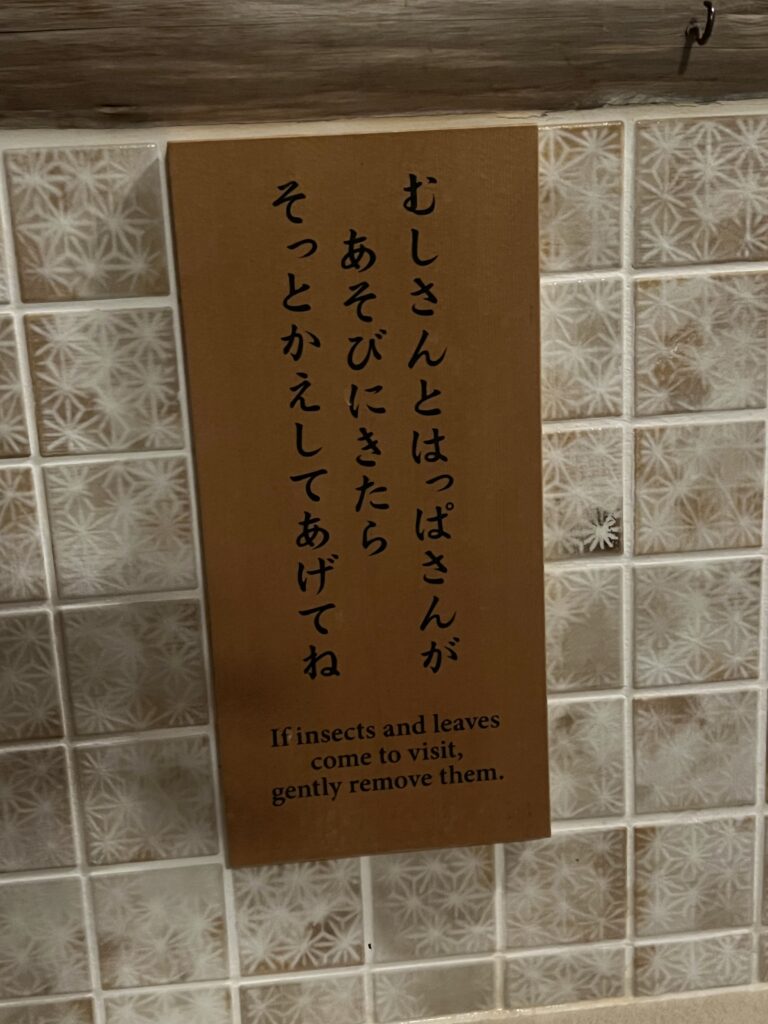 むしさんとはっぱさんが
あそびにきたら
そっとかえしてあげてね
If insects and leaves
come to visit,
gently remove them.